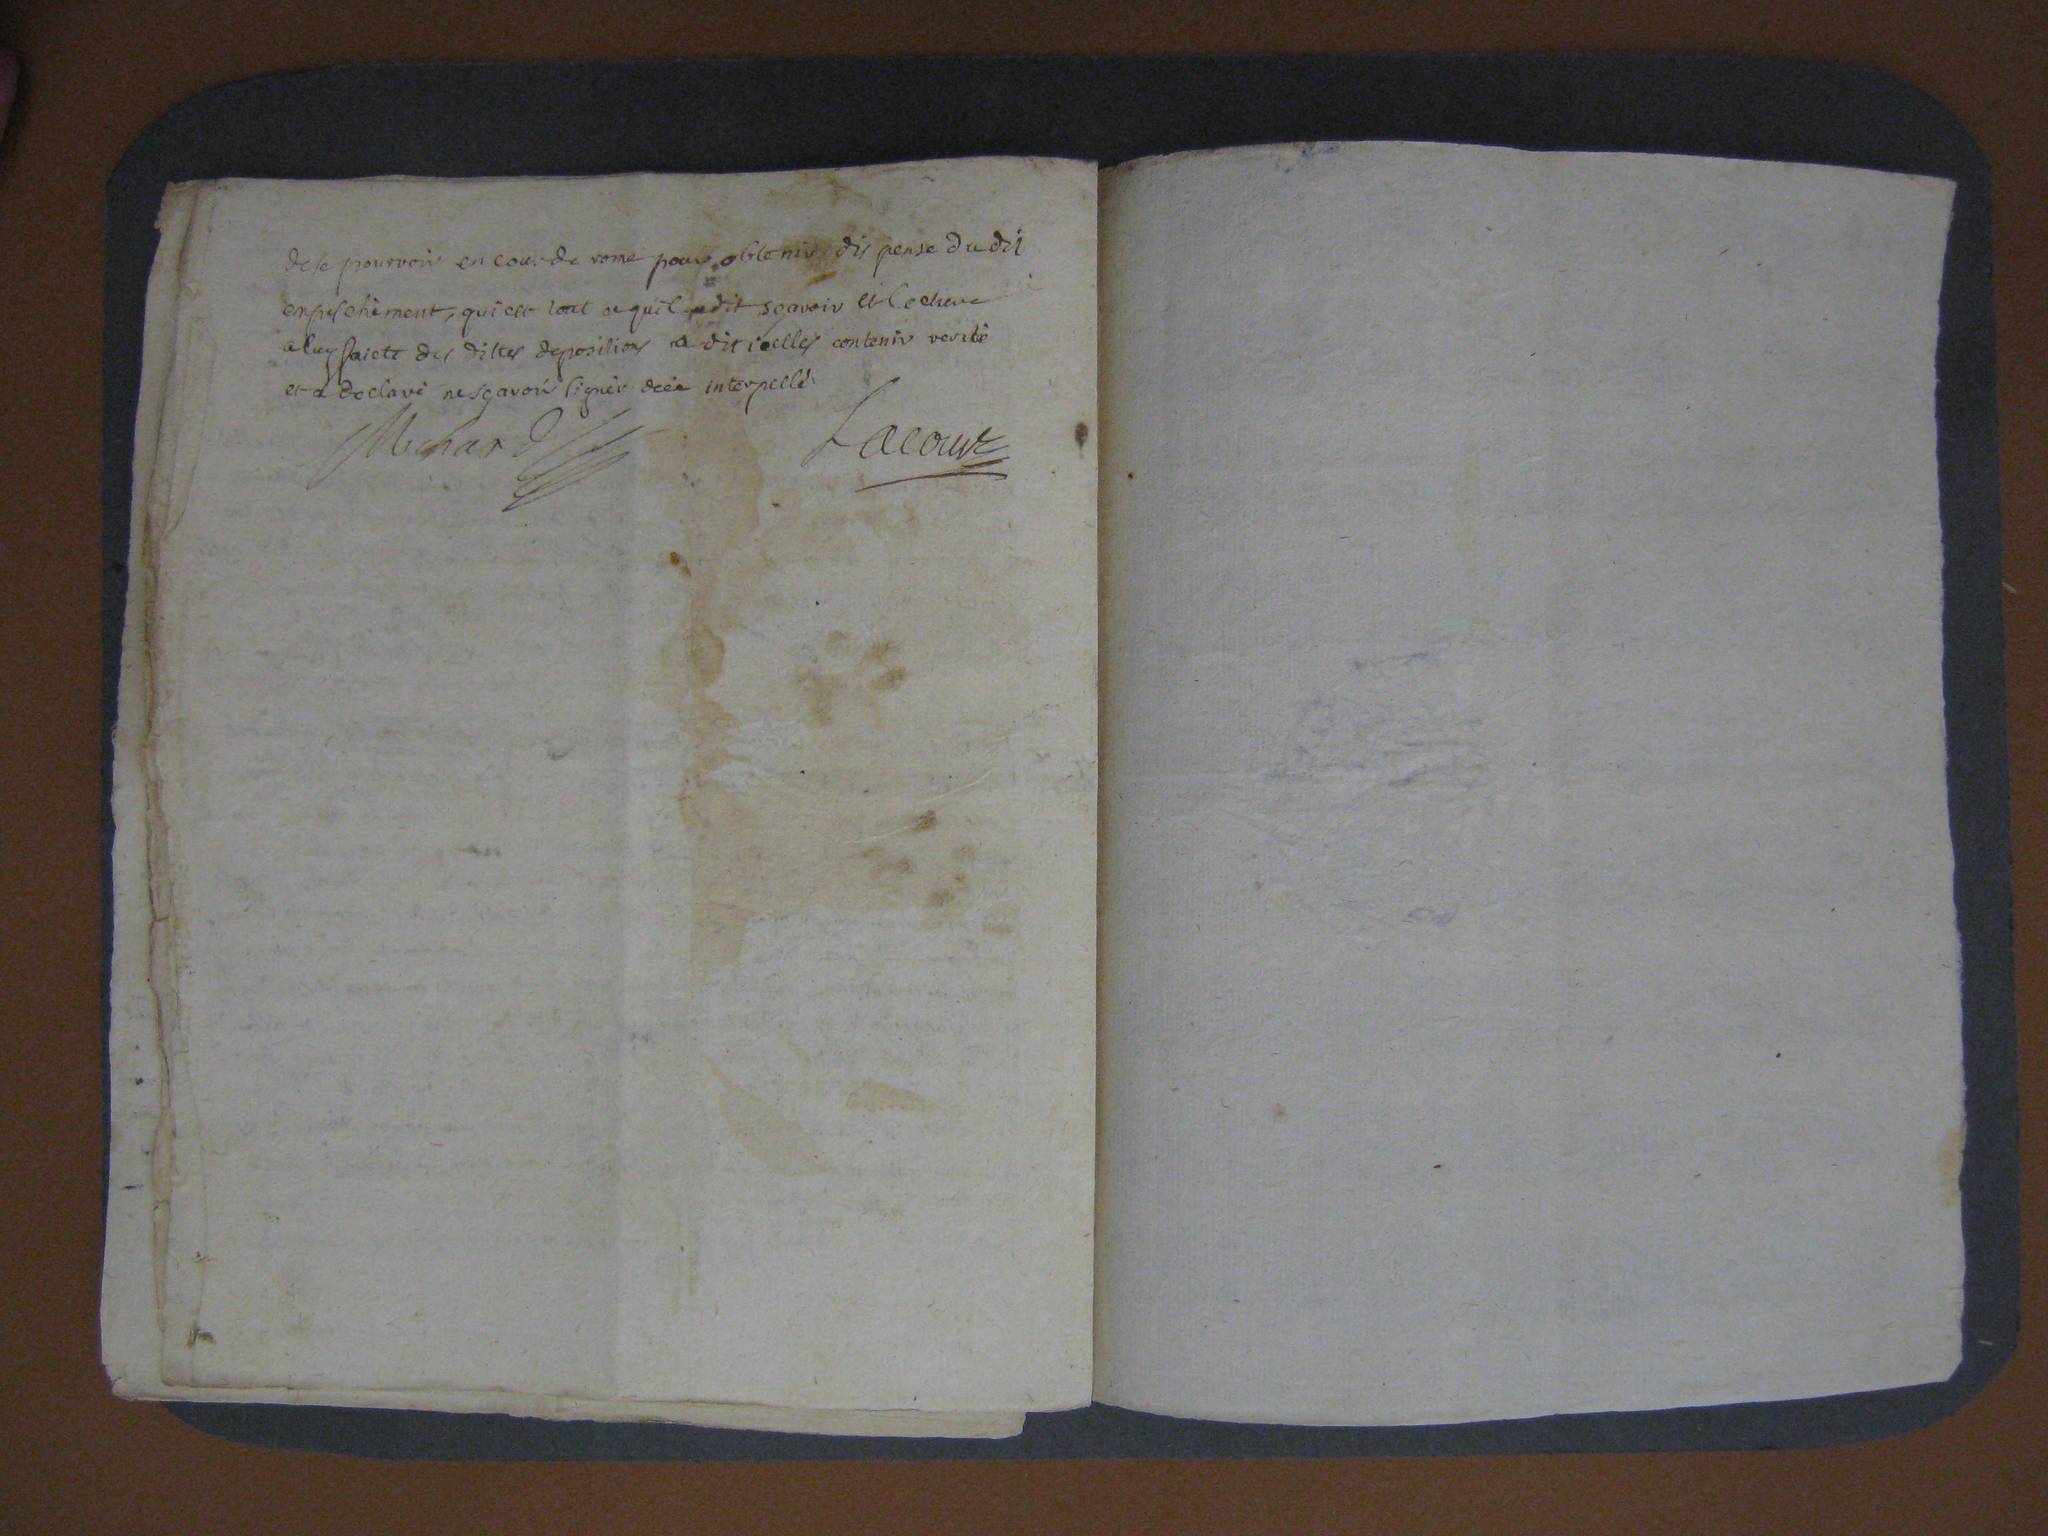 de se pourvoir en cour de rome pour obtenir dis pense du dit
enpeschement, qui est tout ce quil a dit sçavoir et lecture
a luy faicte des dittes depositions a dit icelles contenir verité
et a declaré ne sçavoir signer de ce interpellé
Michard Lacour